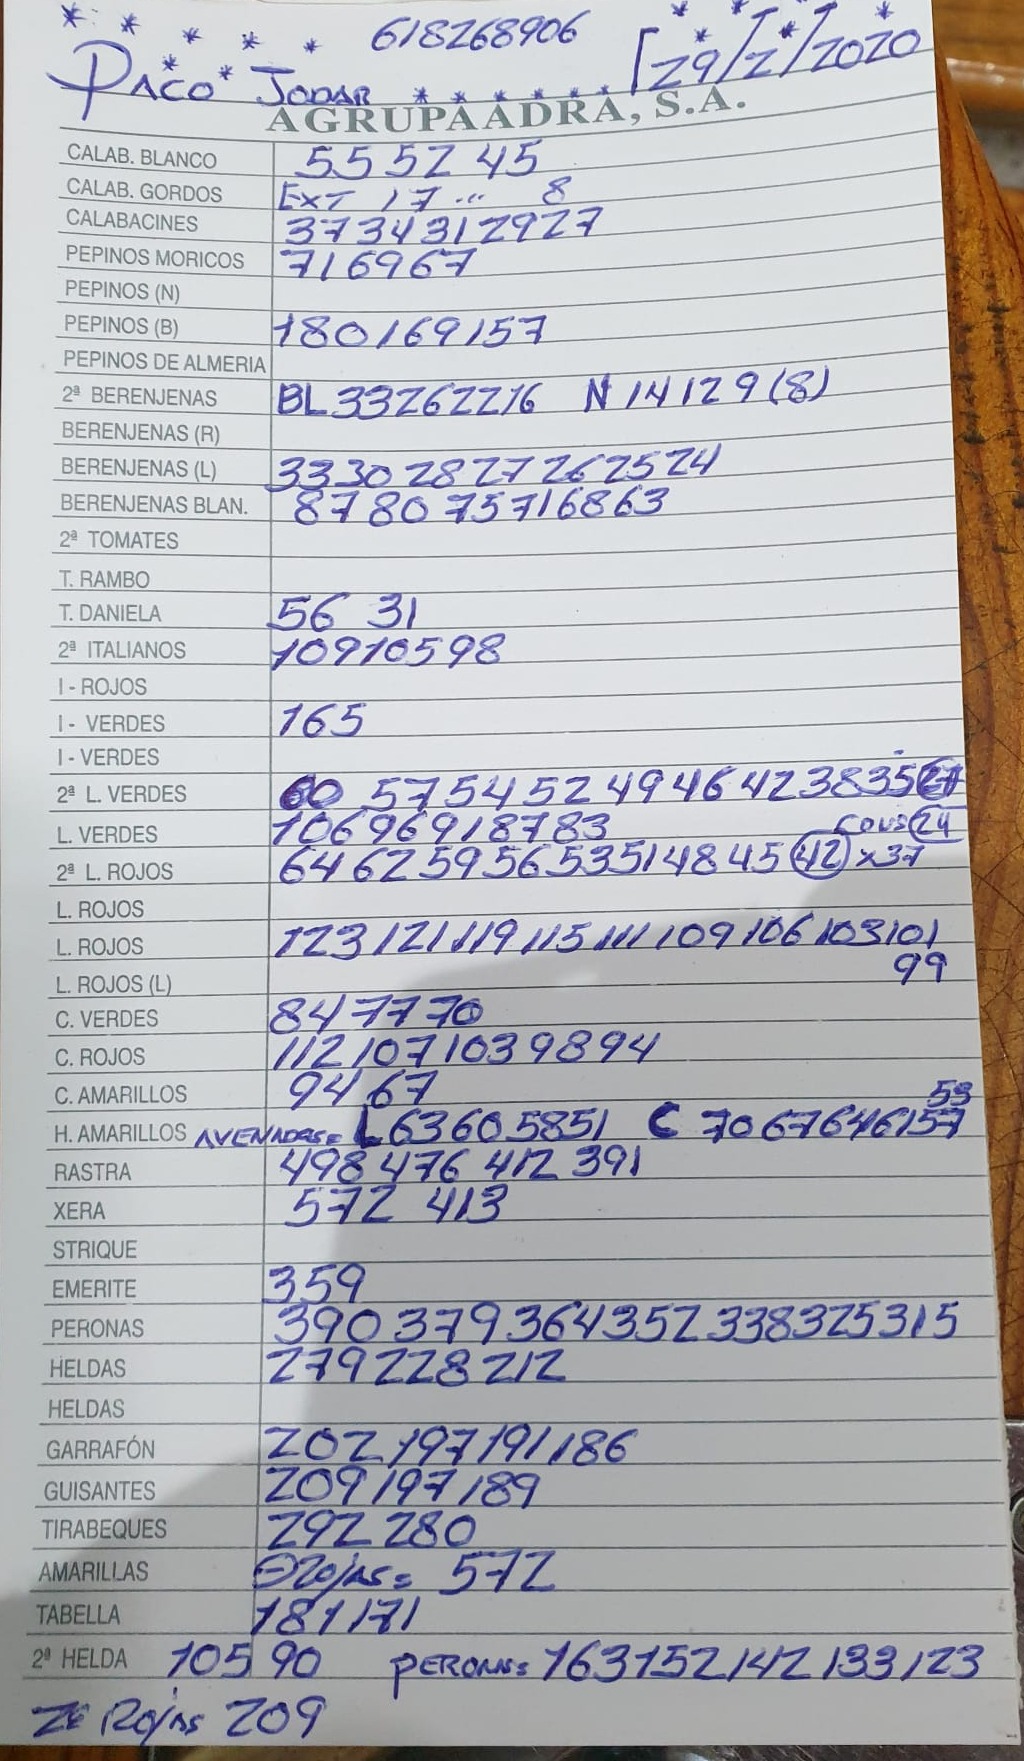 618268906
PACO JODAR 29/2/2020
AGRUPAADRA, S.A.
CALAB. BLANCO 55 52 45
CALAB. GORDOS EXT 17 ... 8
CALABACINES 37 34 31 29 27
PEPINOS MORICOS 71 69 67
PEPINOS (N)
PEPINOS (B) 180 169 157
PEPINOS DE ALMERIA
2ª BERENJENAS BL 33 26 22 16 N 14 12 9 (8)
BERENJENAS (R)
BERENJENAS (L) 33 30 28 27 26 25 24
BERENJENAS BLAN. 87 80 75 71 68 63
2ª TOMATES
T. RAMBO
T. DANIELA 56 31
2ª ITALIANOS 109 105 98
I - ROJOS
I - VERDES 165
I - VERDES
2ª L. VERDES 60 57 54 52 49 46 42 38 35 27
L. VERDES 106 96 91 87 83 24
2ª L. ROJOS 64 62 59 56 53 51 48 45 42 x37
L. ROJOS
L. ROJOS 123 121 119 115 111 109 106 103 101
99
L. ROJOS (L)
C. VERDES 84 77 70
C. ROJOS 112 107 103 98 94
C. AMARILLOS 94 67
53
H. AMARILLOS L 63 60 58 51 C 70 67 64 61 57
RASTRA 498 476 412 391
XERA 572 413
STRIQUE
EMERITE 359
PERONAS 390 379 364 352 338 325 315
HELDAS 279 228 212
HELDAS
GARRAFÓN 202 197 191 186
GUISANTES 209 197 189
TIRABEQUES 292 280
AMARILLAS Rojas = 572
TABELLA 181 171
2ª HELDA 105 90 PERONAS 163 152 142 133 123
Rojas 209